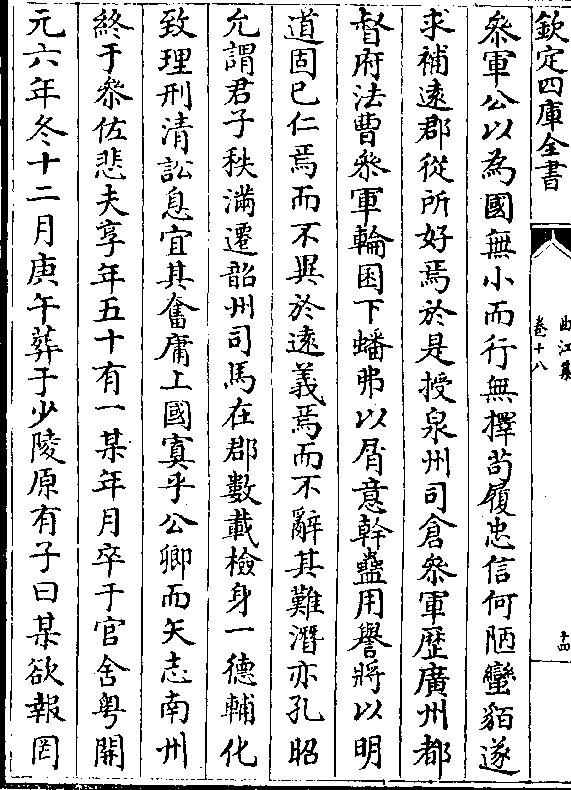 欽定四庫全書
曲江集
卷十八
十四
叅軍公以為國無小而行無擇苟履忠信何陋蠻貊遂
求補遠郡從所好焉於是授泉州司倉叅軍歴廣州都
督府法曹叅軍輪囷下蟠弗以屑意幹蠱用譽將以明
道固已仁焉而不異於遠義焉而不辭其難潛亦孔昭
允謂君子秩滿遷韶州司馬在郡數載檢身一德輔化
致理刑清訟息宜其奮庸上國寘乎公卿而矢志南州
終于叅佐悲夫享年五十有一某年月卒于官舍粤開
元六年冬十二月庚午葬于少陵原有子曰某欲報罔